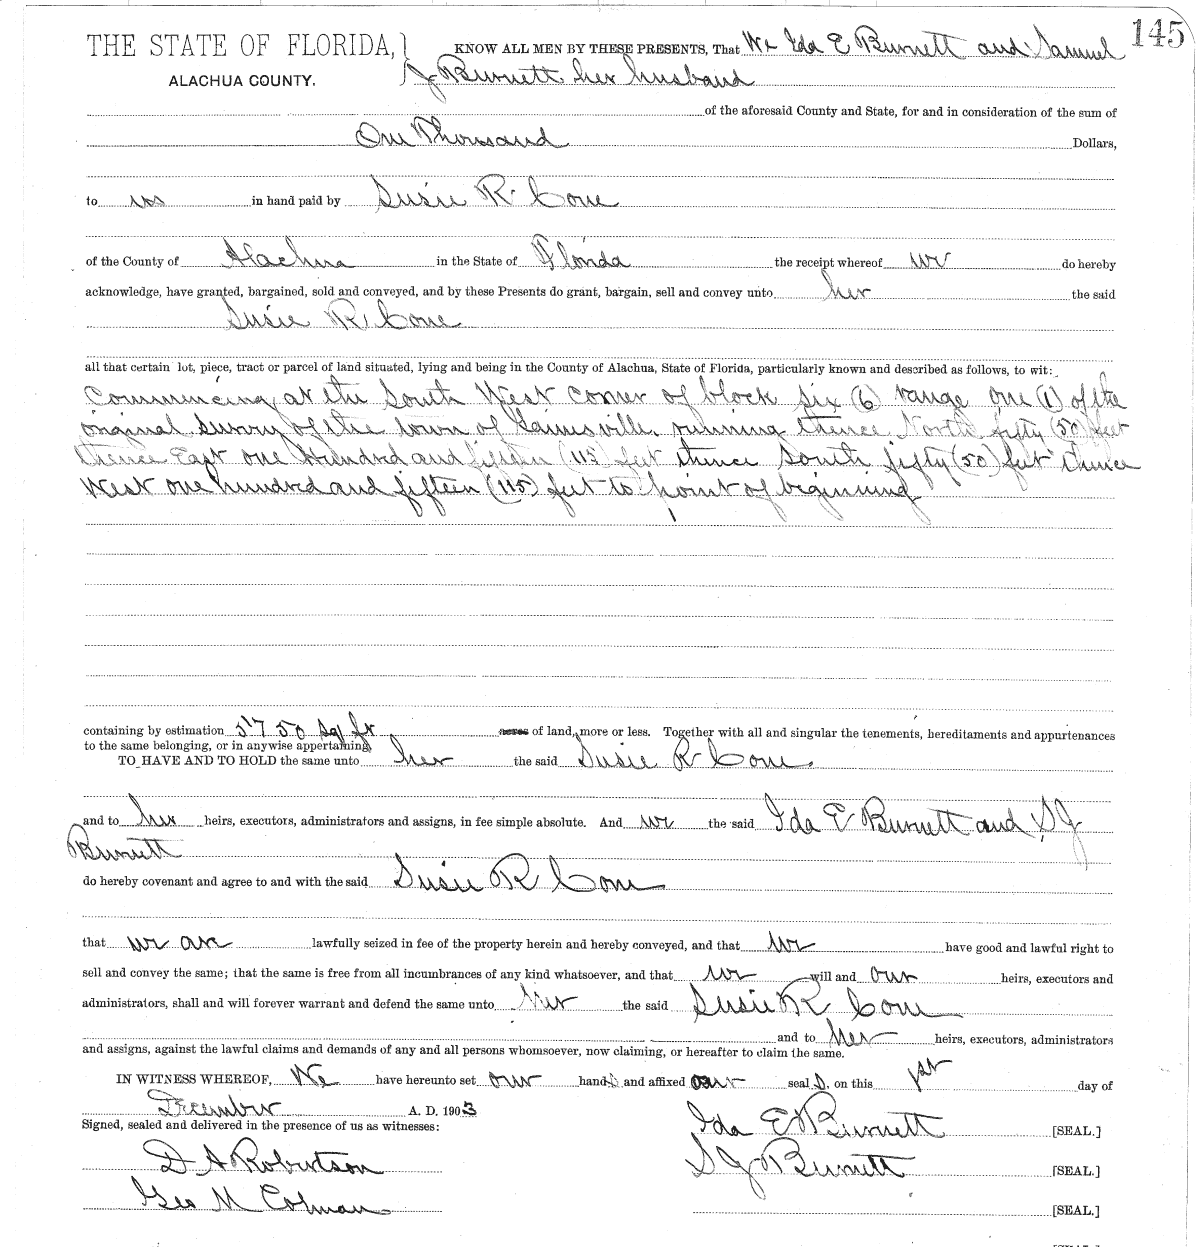 145
THE STATE OF FLORIDA, } KNOW ALL MEN BY THESE PRESENTS, That We Ida E Burnett and Samuel
ALACHUA COUNTY. J Burnett her husband
of the aforesaid County and State, for and in consideration of the sum of
One Thousand Dollars,
to us in hand paid by Susie R. Cone
of the County of Alachua in the State of Florida the receipt whereof we do hereby
acknowledge, have granted, bargained, sold and conveyed, and by these Presents do grant, bargain, sell and convey unto her the said
Susie R. Cone
all that certain lot, piece, tract or parcel of land situated, lying and being in the County of Alachua, State of Florida, particularly known and described as follows, to wit:
Commencing at the South West corner of block six (6) range one (1) of the
original survey of the town of Gainesville, running thence North fifty (50) feet
thence East one Hundred and fifteen (115) feet thence South fifty (50) feet thence
West one hundred and fifteen (115) feet to point of beginning
containing by estimation 5750 sq ft acres of land, more or less. Together with all and singular the tenements, hereditaments and appurtenances
to the same belonging, or in anywise appertaining
TO HAVE AND TO HOLD the same unto her the said Susie R. Cone.
and to her heirs, executors, administrators and assigns, in fee simple absolute. And we the said Ida E Burnett and S J
Burnett
do hereby covenant and agree to and with the said Susie R Cone
that we are lawfully seized in fee of the property herein and hereby conveyed, and that we have good and lawful right to
sell and convey the same; that the same is free from all incumbrances of any kind whatsoever, and that we will and our heirs, executors and
administrators, shall and will forever warrant and defend the same unto her the said Susie R Cone
and to her heirs, executors, administrators
and assigns, against the lawful claims and demands of any and all persons whomsoever, now claiming, or hereafter to claim the same.
IN WITNESS WHEREOF, We have hereunto set our hands and affixed our seal s, on this 1st day of
December A. D. 1903
Signed, sealed and delivered in the presence of us as witnesses: Ida E Burnett [SEAL.]
D A Robertson S J Burnett [SEAL.]
Geo M Colman [SEAL.]